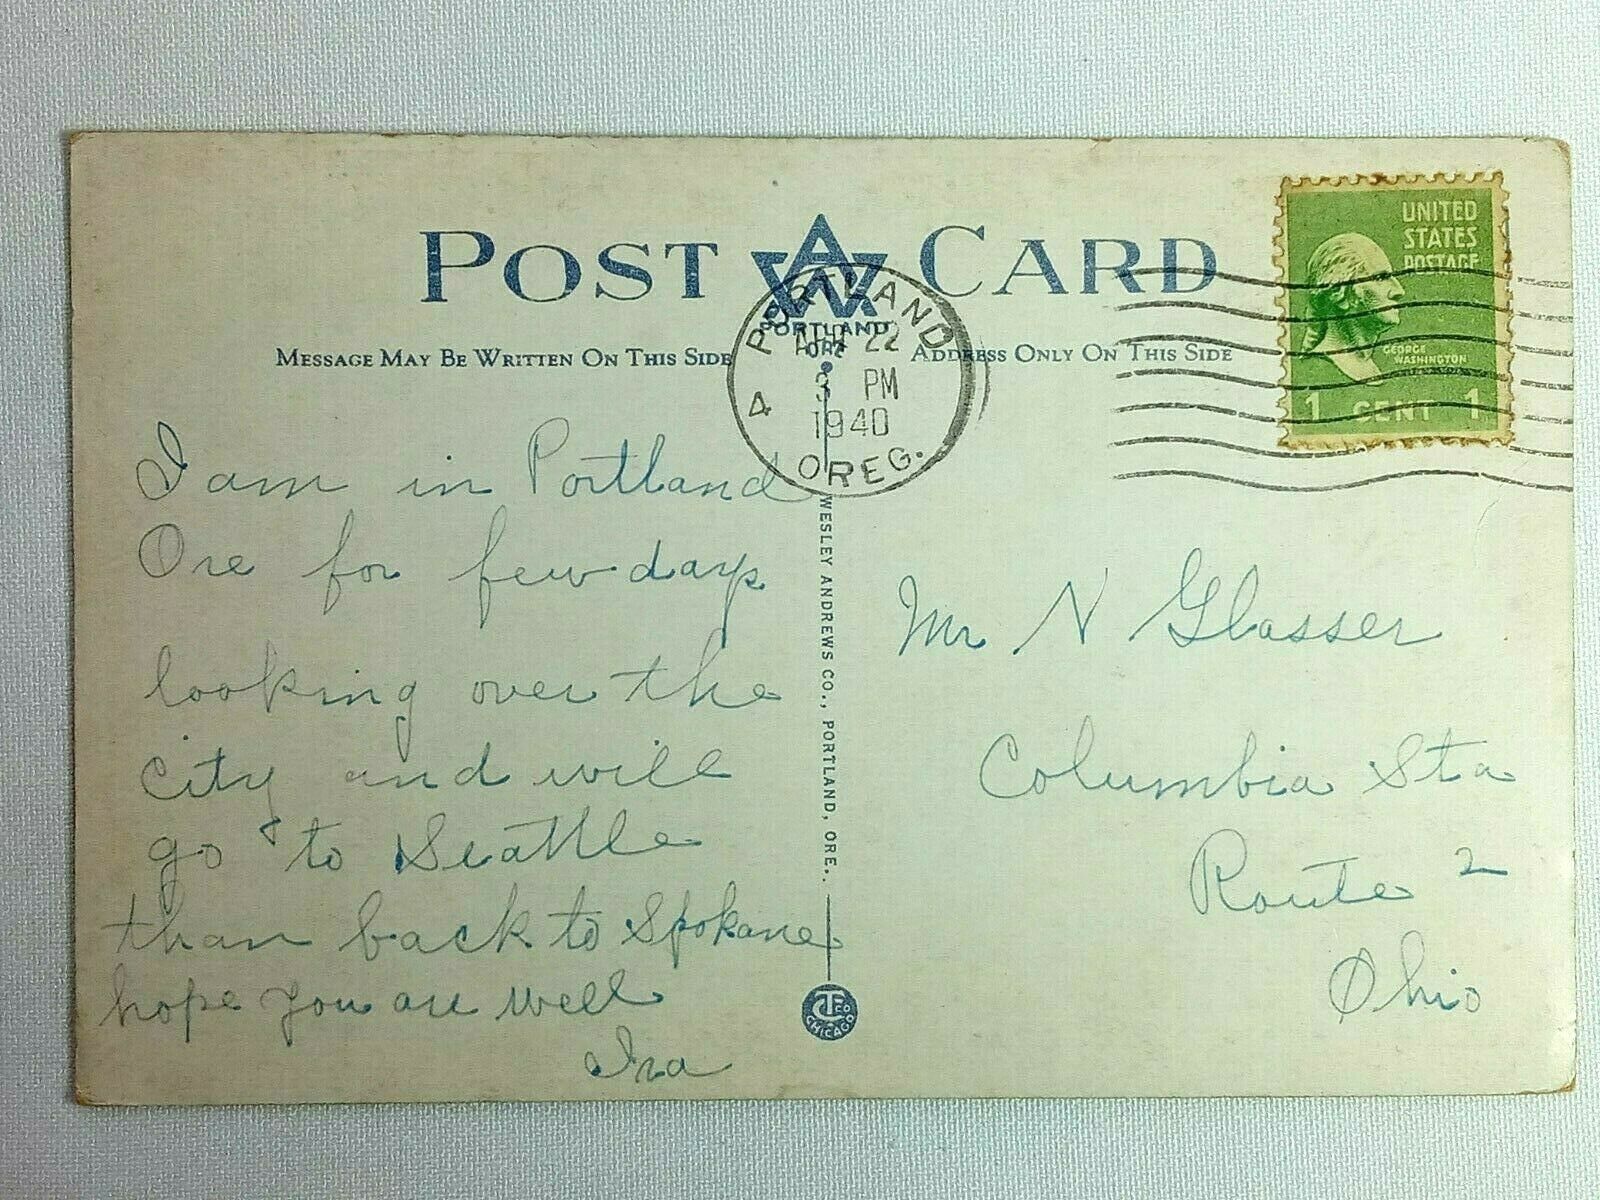 POST CARD
AWW
PORTLAND
ORE
MESSAGE MAY BE WRITTEN ON THIS SIDE
ADDRESS ONLY ON THIS SIDE
PORTLAND
APR 22
PM
1940
4
OREG.
UNITED
STATES
POSTAGE
GEORGE
WASHINGTON
1 CENT 1
I am in Portland
Ore for few days
looking over the
city and will
go to Seattle
than back to Spokane
hope you are well
Ira
WESLEY ANDREWS CO., PORTLAND, ORE.
CT CO
CHICAGO
Mr N Glasser
Columbia Sta
Route 2
Ohio